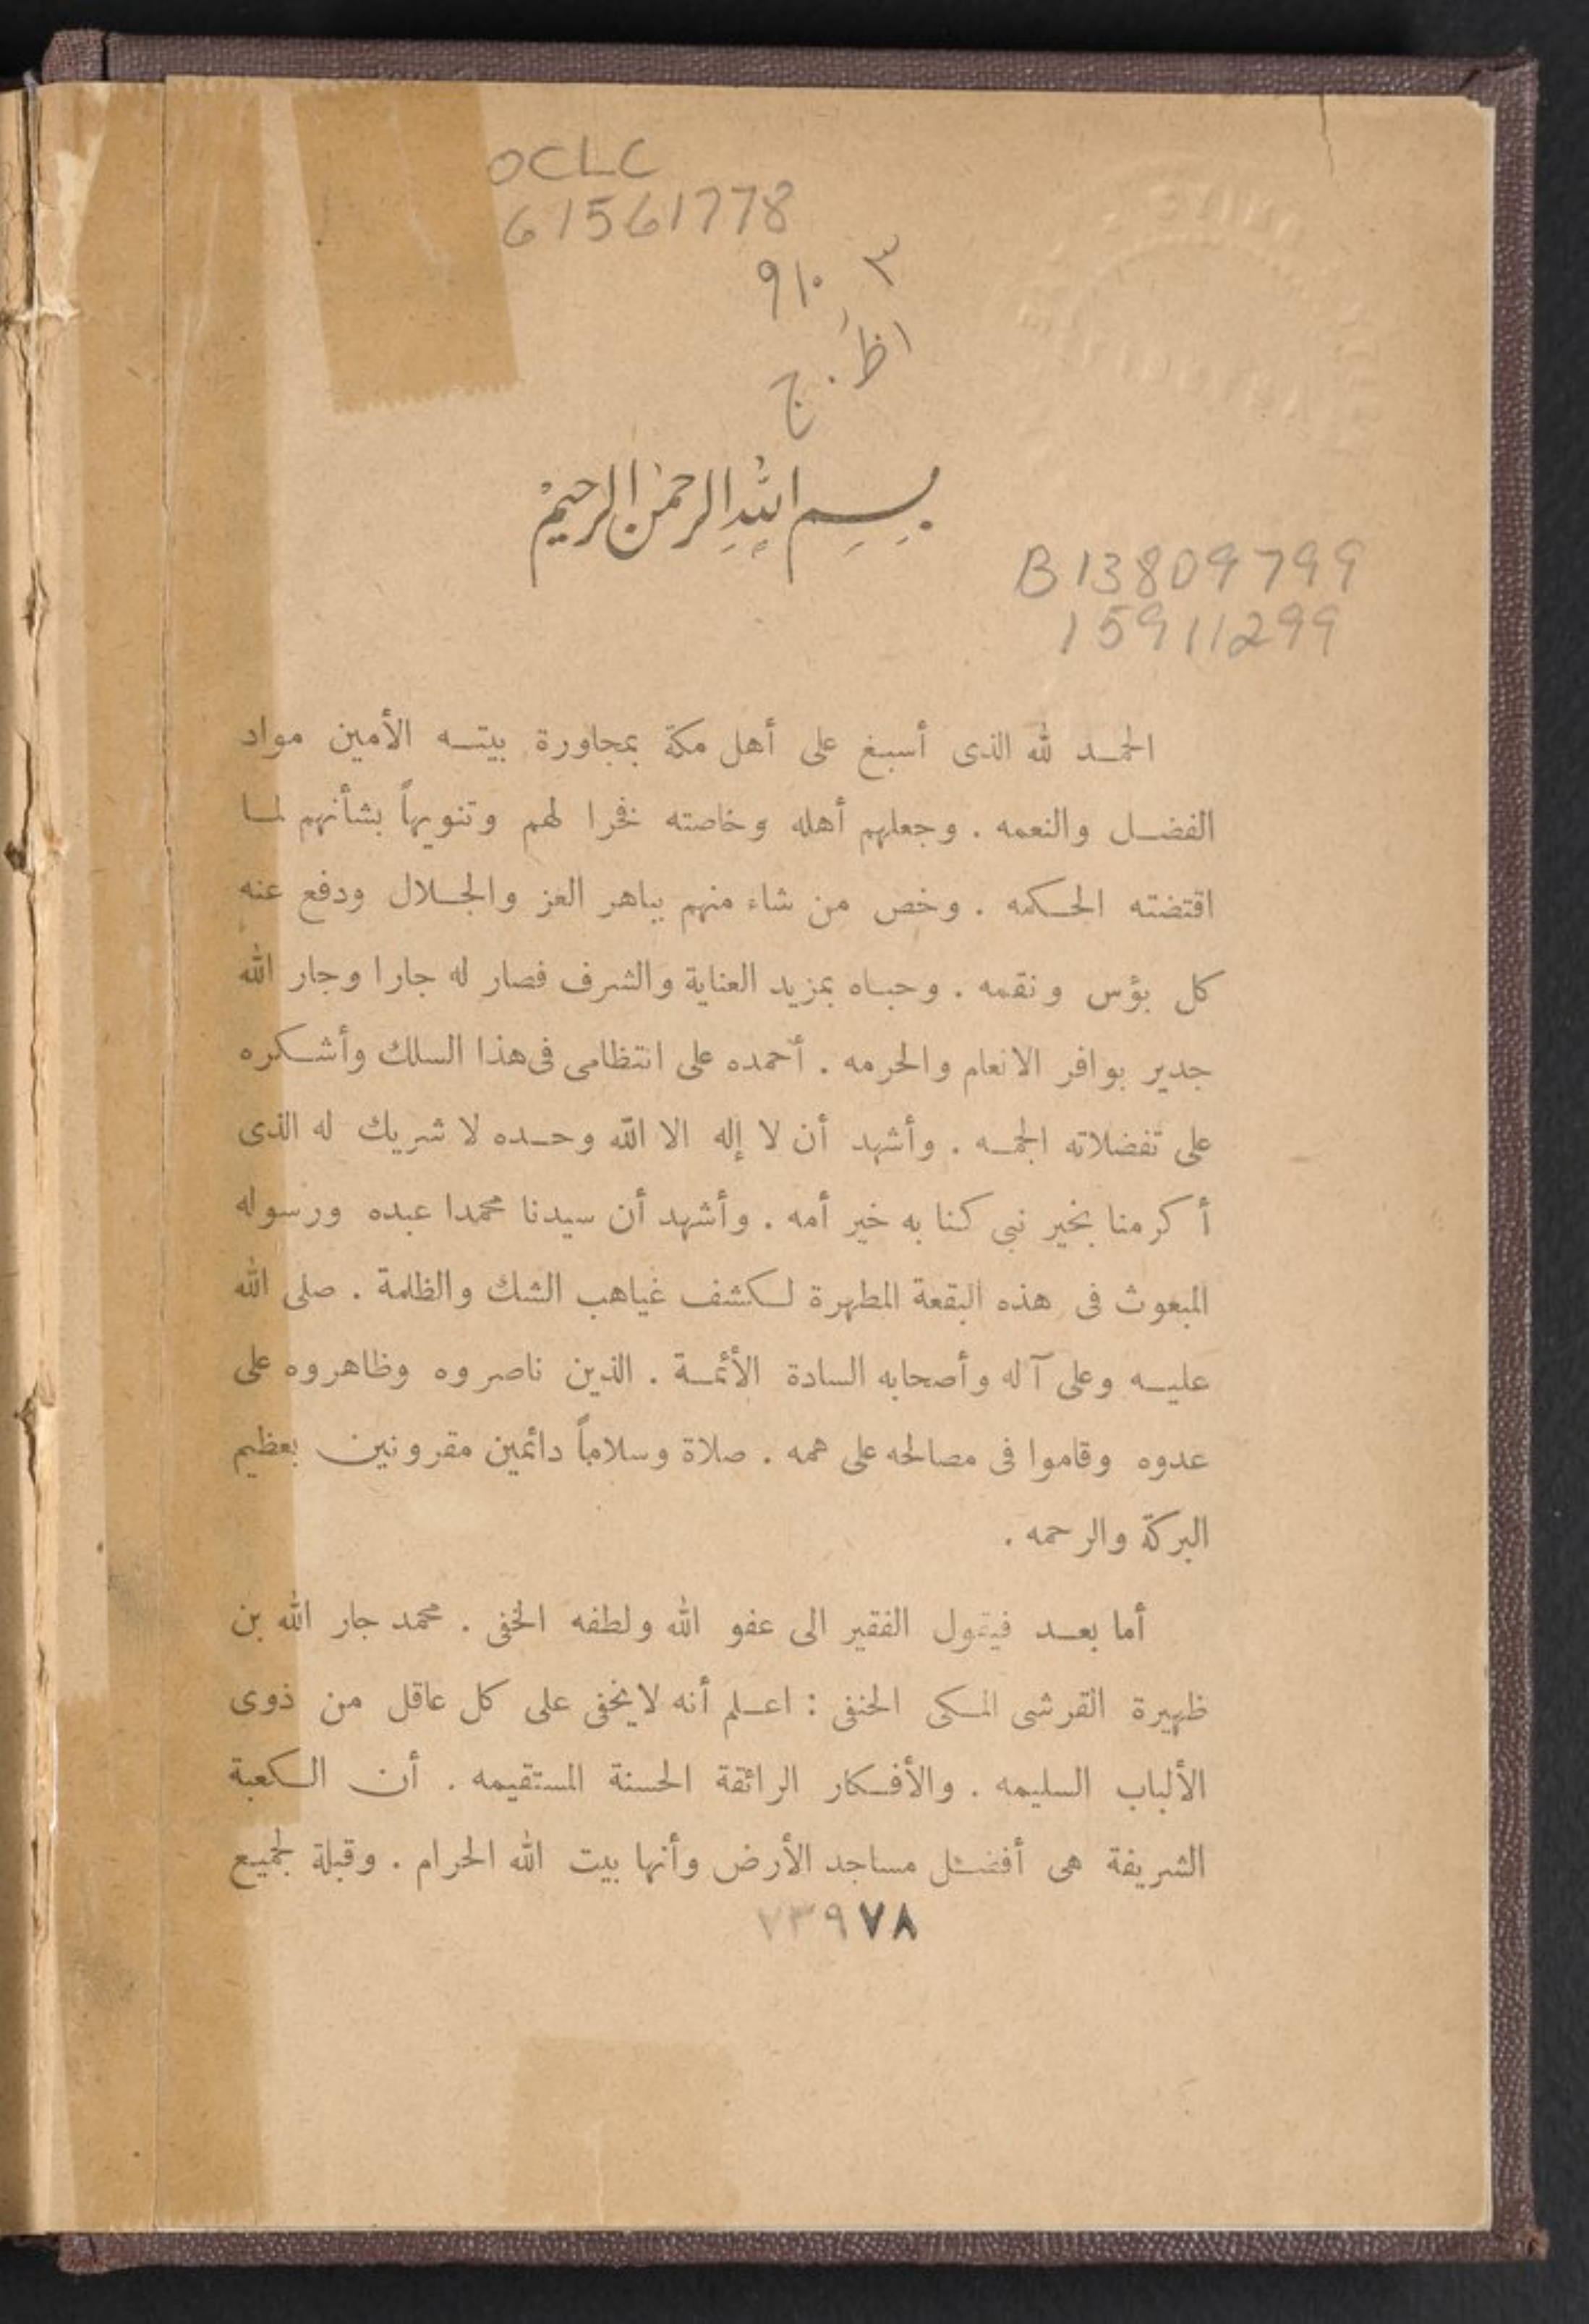 OCLC
61561778
٩١٠٫٣
اظ. ج
بسم الله الرحمن الرحيم
B13809799
15911299
الحمد لله الذى أسبغ على أهل مكة بمجاورة بيته الأمين مواد
الفضل والنعمه . وجعلهم أهله وخاصته فخرا لهم وتنويهاً بشأنهم لما
اقتضته الحكمه . وخص من شاء منهم بباهر العز والجلال ودفع عنه
كل بؤس ونقمه . وحباه بمزيد العناية والشرف فصار له جارا وجار الله
جدير بوافر الانعام والحرمه . أحمده على انتظامى فى هذا السلك وأشكره
على تفضلاته الجمه . وأشهد أن لا إله الا الله وحده لا شريك له الذى
أكرمنا بخير نبى كنا به خير أمه . وأشهد أن سيدنا محمدا عبده ورسوله
المبعوث فى هذه البقعة المطهرة لكشف غياهب الشك والظلمة . صلى الله
عليه وعلى آله وأصحابه السادة الأئمة . الذين ناصروه وظاهروه على
عدوه وقاموا فى مصالحه على همه . صلاة وسلاماً دائمين مقرونين بعظيم
البركة والرحمه .
أما بعد فيقول الفقير الى عفو الله ولطفه الخفى . محمد جار الله بن
ظهيرة القرشى المكى الحنفى : اعلم أنه لا يخفى على كل عاقل من ذوى
الألباب السليمه . والأفكار الرائقة الحسنة المستقيمه . أن الكعبة
الشريفة هى أفضل مساجد الأرض وأنها بيت الله الحرام . وقبلة لجميع
٧٣٩٧٨